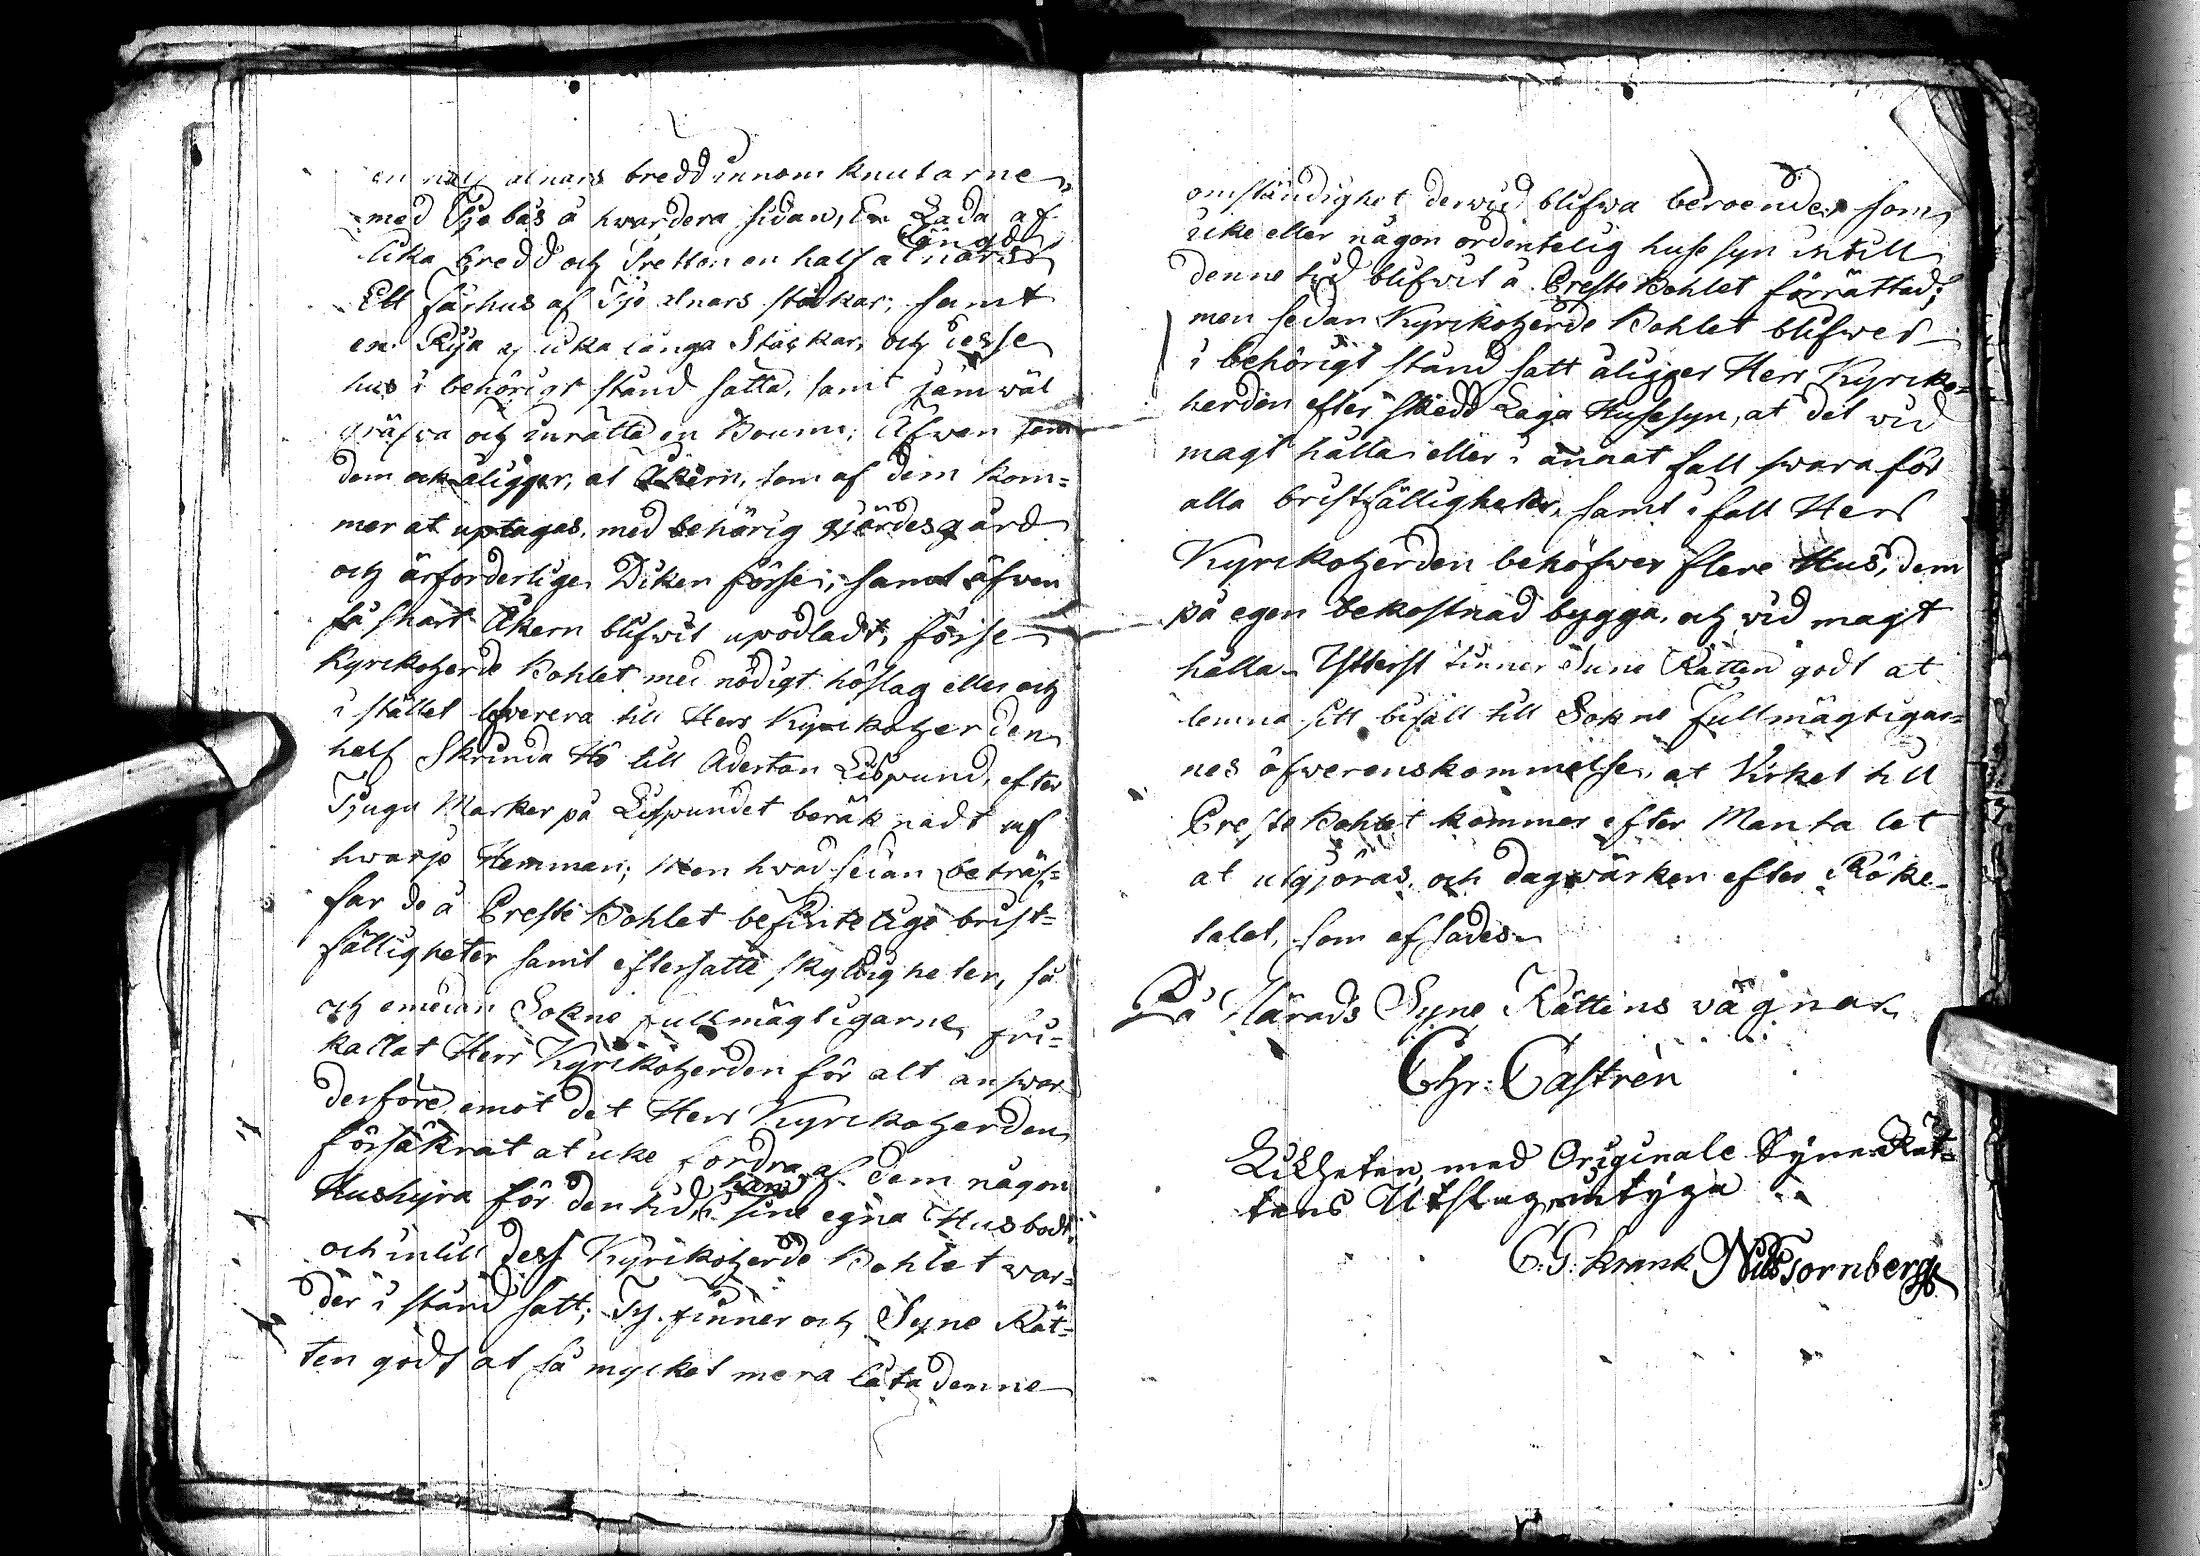 en half alnars bredd innom knutarne
med Sju bås å hwardera sidan, En Lada af
lika bredd och Tretton en half alnars
Längd
Ett fårhus af Sju alnars stäckar; samt
en Rija af lika långa Stäckar, och desse
hus i behörigt stånd satta, samt jämwäl
gräfwa och inrätta en Brunn; Äfwen som
dem ock åligger, at Åkern, som af dem kom=
mer at uptagas, med behörig gjärdesgård
och ärforderlige Diken förse; samt äfwen
så snart Åkern blifwit upodladt, förse
Kyrckoherde Bohlet med nödigt höslag eller och
i stället lefwerera till Herr Kyrckoherden
half Skrinda Hö till Aderton Lispund, efter
Tjugu Marker på Lispundet beräknadt af
hwarje Hemman; Men hwad sedan beträf=
far de å Preste Bohlet befinteliga brist=
fälligheter samt eftersatte skyldigheter, så
och emedan Sokne fullmägtigarne fri=
kallat Herr Kyrckoherden för alt answar
derföre, emot det Herr Kyrckoherden
försäkrat at icke fordra af dem någon
Hushyra för den tid han i sine egna Hus bodt,
och intill dess Kyrckoherde Bohlet war=
der i stånd satt; Ty finner och Syne Rät=
ten godt at så mycket mera låta denne
omständighet derwid blifwa beroende, som
icke eller någon ordentelig husesyn intill
denne tid blifwit å Preste Bohlet förrättad;
men sedan Kyrckoherde Bohlet blifwer
i behörigt stånd satt åligger Herr Kyrcko=
herden efter skedd Laga Husesyn, at det wid
magt hålla eller i annat fall swara för
alla bristfälligheter, samt i fall Herr
Kyrckoherden behöfwer flere Hus, dem
på egen bekostnad bygga, och wid magt
hålla. Ytterst finner Syne Rätten godt at
lemna sitt bifall till Sokne fullmägtigar=
nes öfwerenskommelse, at Virket till
Preste Bohlet kommer efter Mantalet
at utgjöras, och dagswärken efter Röke=
talet, som afsades.
På Härads Syne Rättens vägnar
Chr: Castrén
Likheten med Originale Syne Rät=
tens Utslag, intyga
C. G. Krank Nils Tornberg